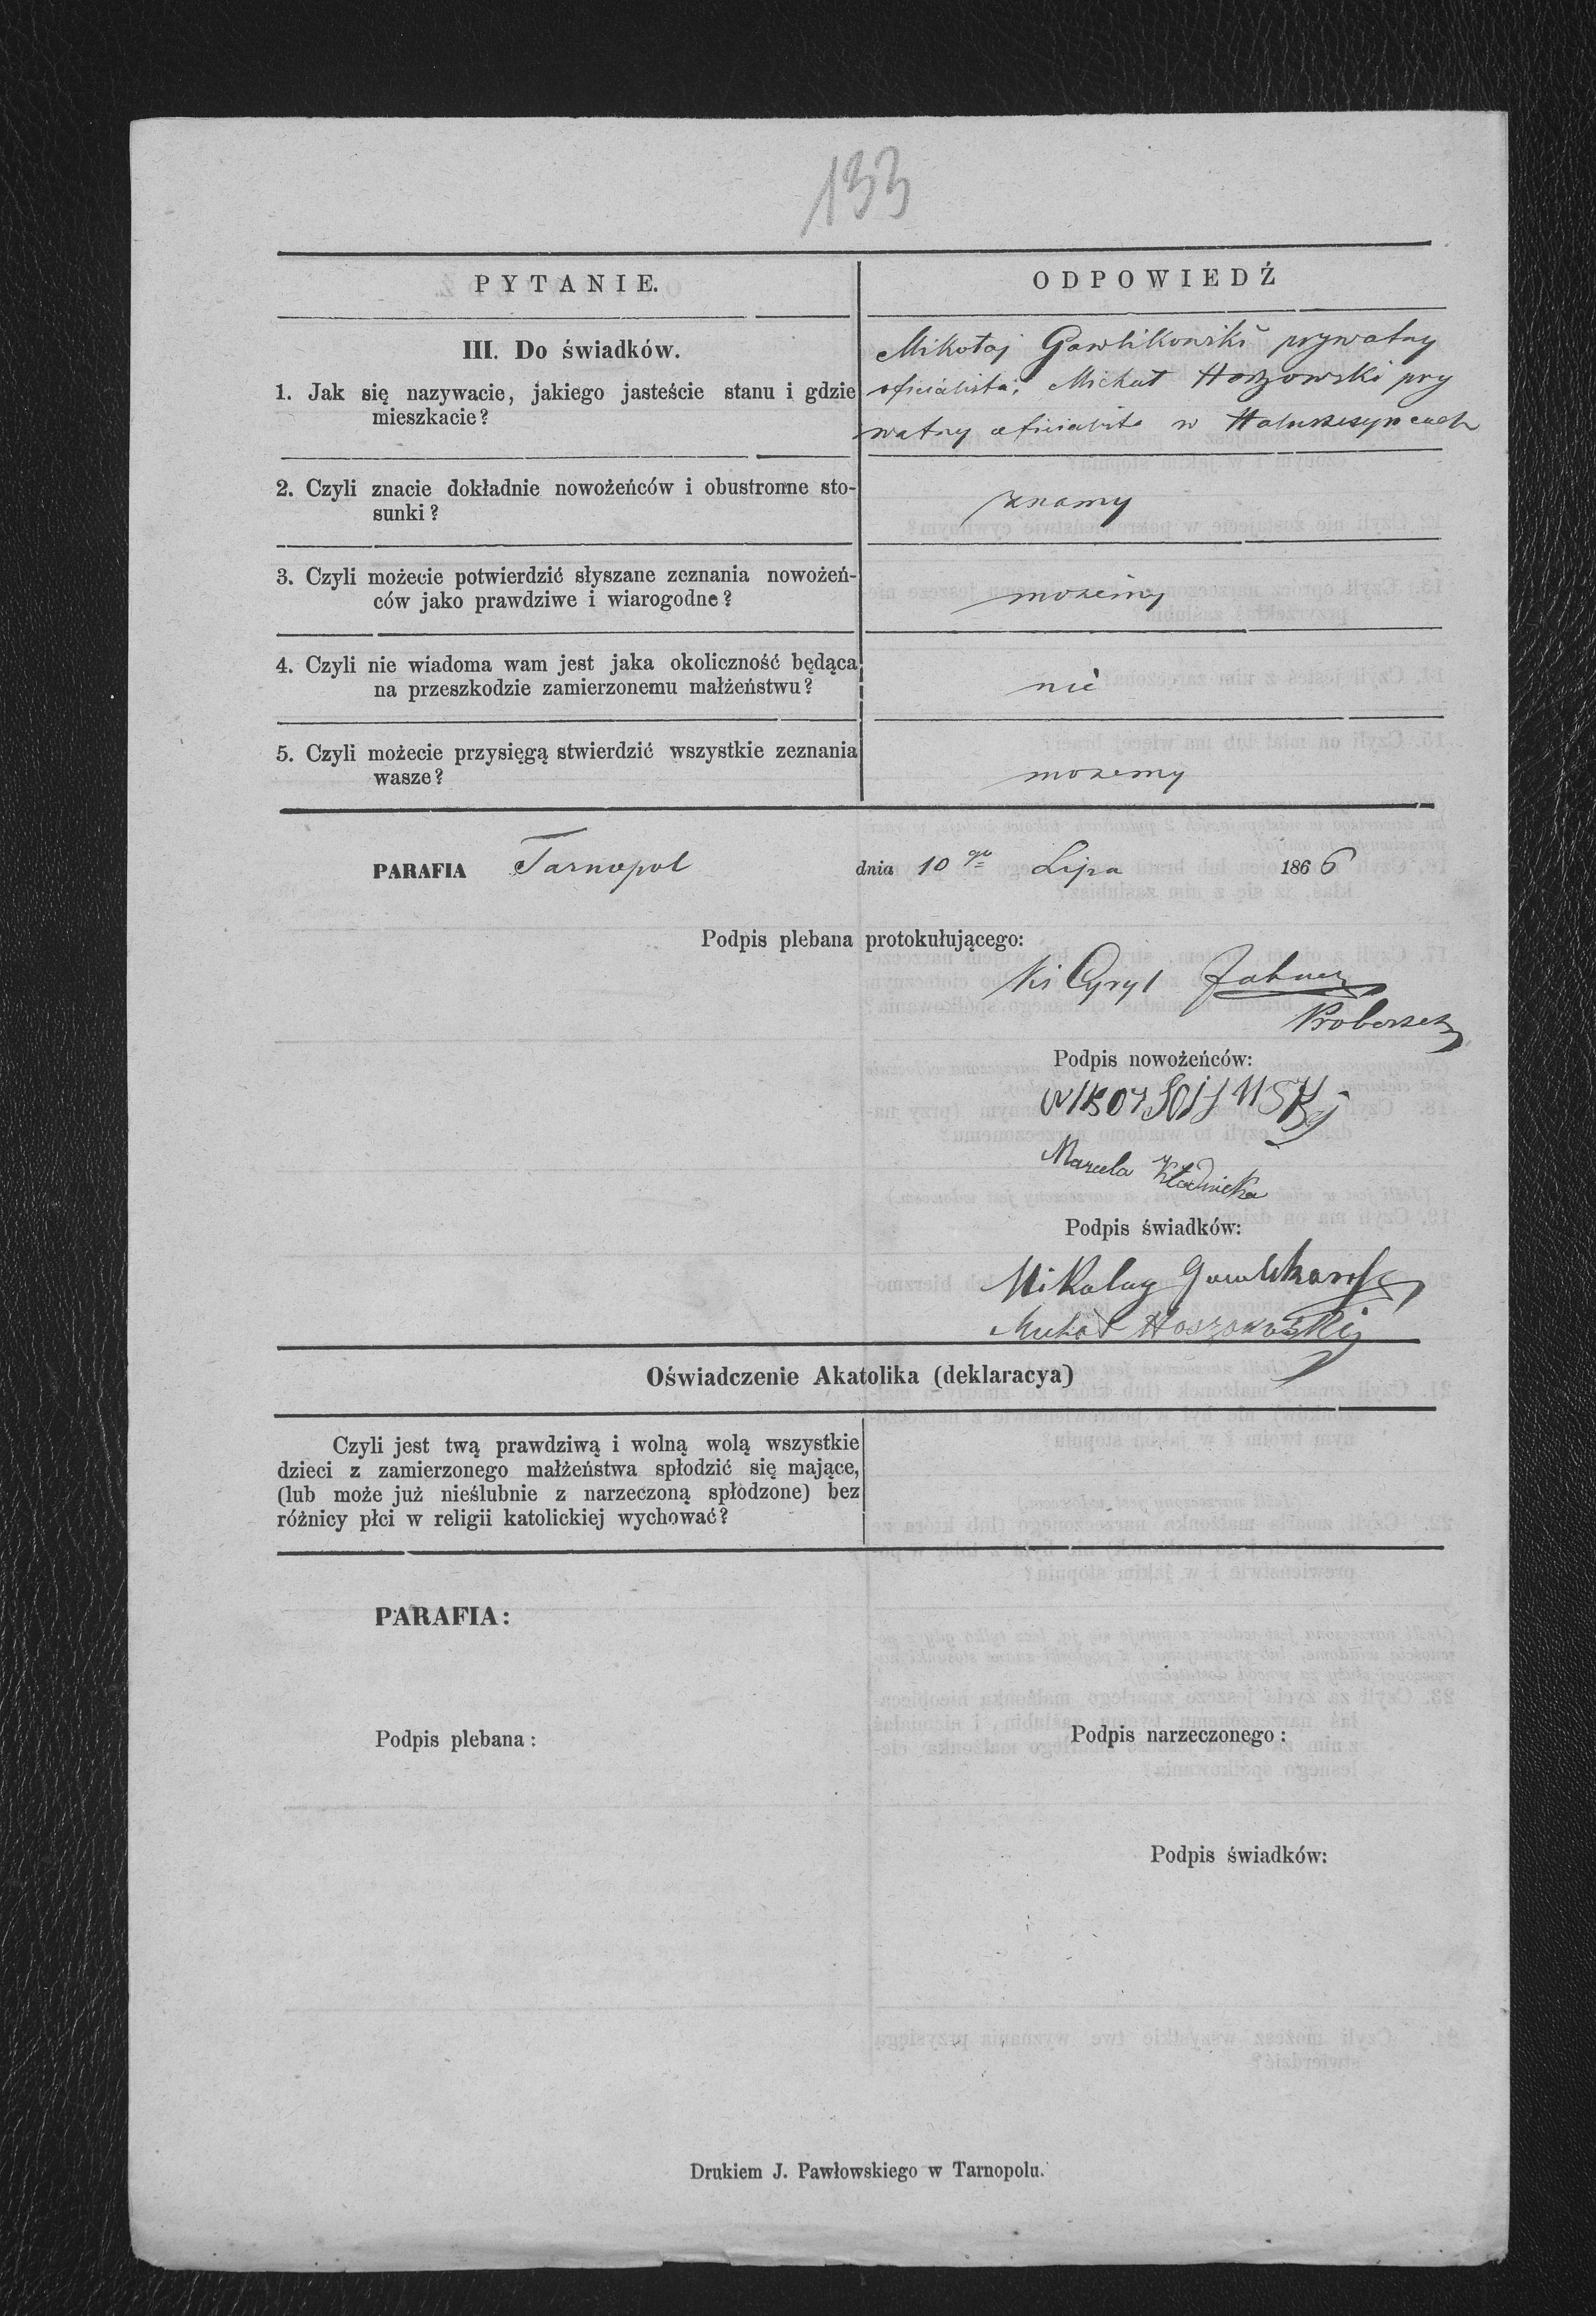 133
PYTANIE.
ODPOWIEDŹ
III. Do świadków.
1. Jak się nazywacie, jakiego jasteście stanu i gdzie
mieszkacie?
Mikołaj Gawlikowski prywatny
oficialista, Michał Hoszowski pry
watny oficialista w Hałuszczyńcach
2. Czyli znacie dokładnie nowożeńców i obustronne sto-
sunki?
znamy
3. Czyli możecie potwierdzić słyszane zeznania nowożeń-
ców jako prawdziwe i wiarogodne?
możemy
4. Czyli nie wiadoma wam jest jaka okoliczność będąca
na przeszkodzie zamierzonemu małżeństwu?
nie
5. Czyli możecie przysięgą stwierdzić wszystkie zeznania
wasze?
możemy
PARAFIA Tarnopol dnia 10 go Lipca 1866
Podpis plebana protokułującego:
Ks Cyryl
Proboszcz
Podpis nowożeńców:
Marcela Kładnicka
Podpis świadków:
Mikołay
Michał Hoszowski
Oświadczenie Akatolika (deklaracya)
Czyli jest twą prawdziwą i wolną wolą wszystkie
dzieci z zamierzonego małżeństwa spłodzić się mające,
(lub może już nieślubnie z narzeczoną spłodzone) bez
różnicy płci w religii katolickiej wychować?
PARAFIA:
Podpis plebana:
Podpis narzeczonego:
Podpis świadków:
Drukiem J. Pawłowskiego w Tarnopolu.